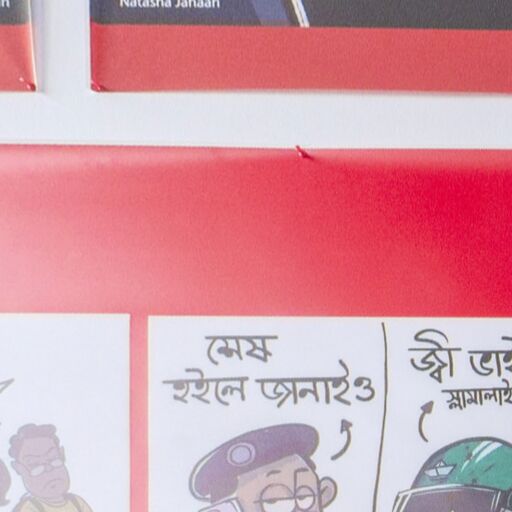 Natasha Jahaan
মেষ
হইলে জানাইও
জ্বী ভাই